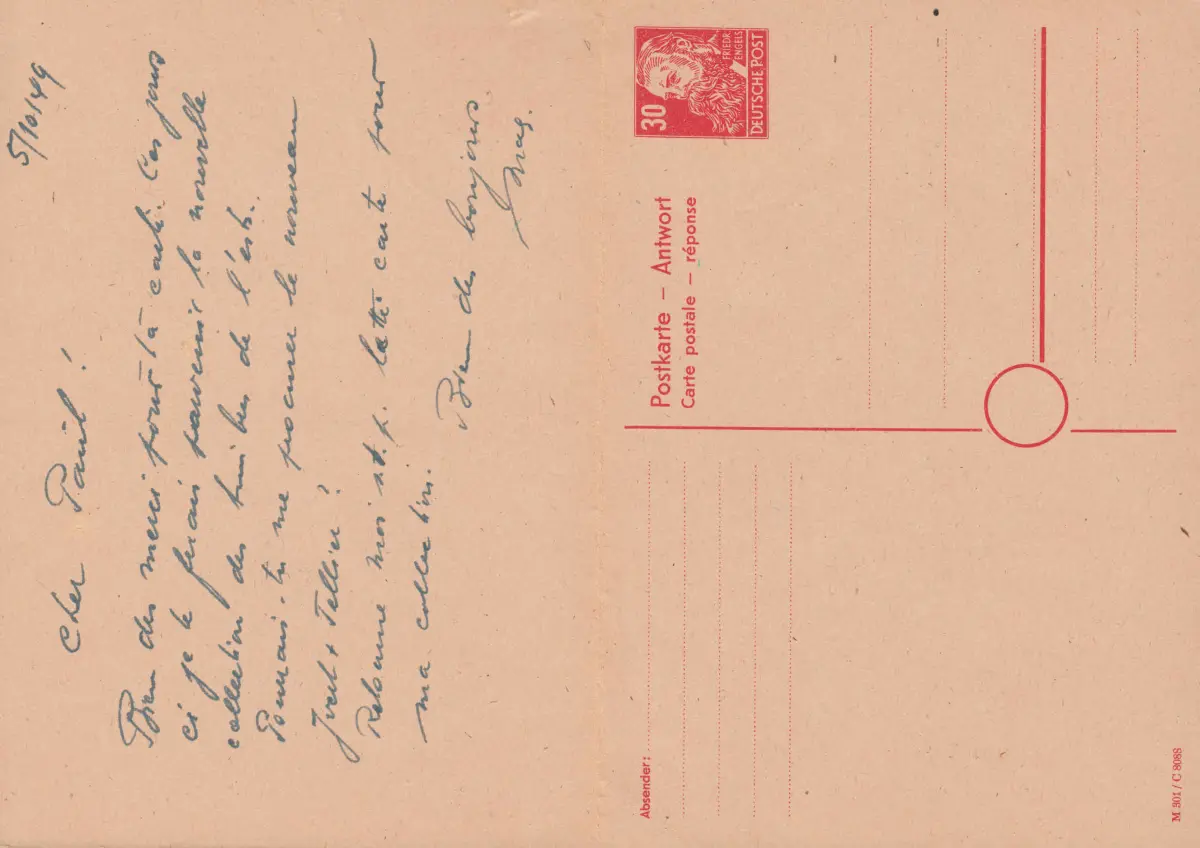 5/10/49
Cher Paul!
Bien des merci pour ta carte. Ces jours
ci je te ferais parvenir la nouvelle
collection des timbres de l'est.
Pourrais-tu me procurer le nouveau
Yvert + Tellier?
Retourne moi s.t.p. cette carte pour
ma collection.
Bien des bonjours
30
FRIEDR. ENGELS
DEUTSCHE POST
Postkarte – Antwort
Carte postale – réponse
Absender:
M 301 / C 8088